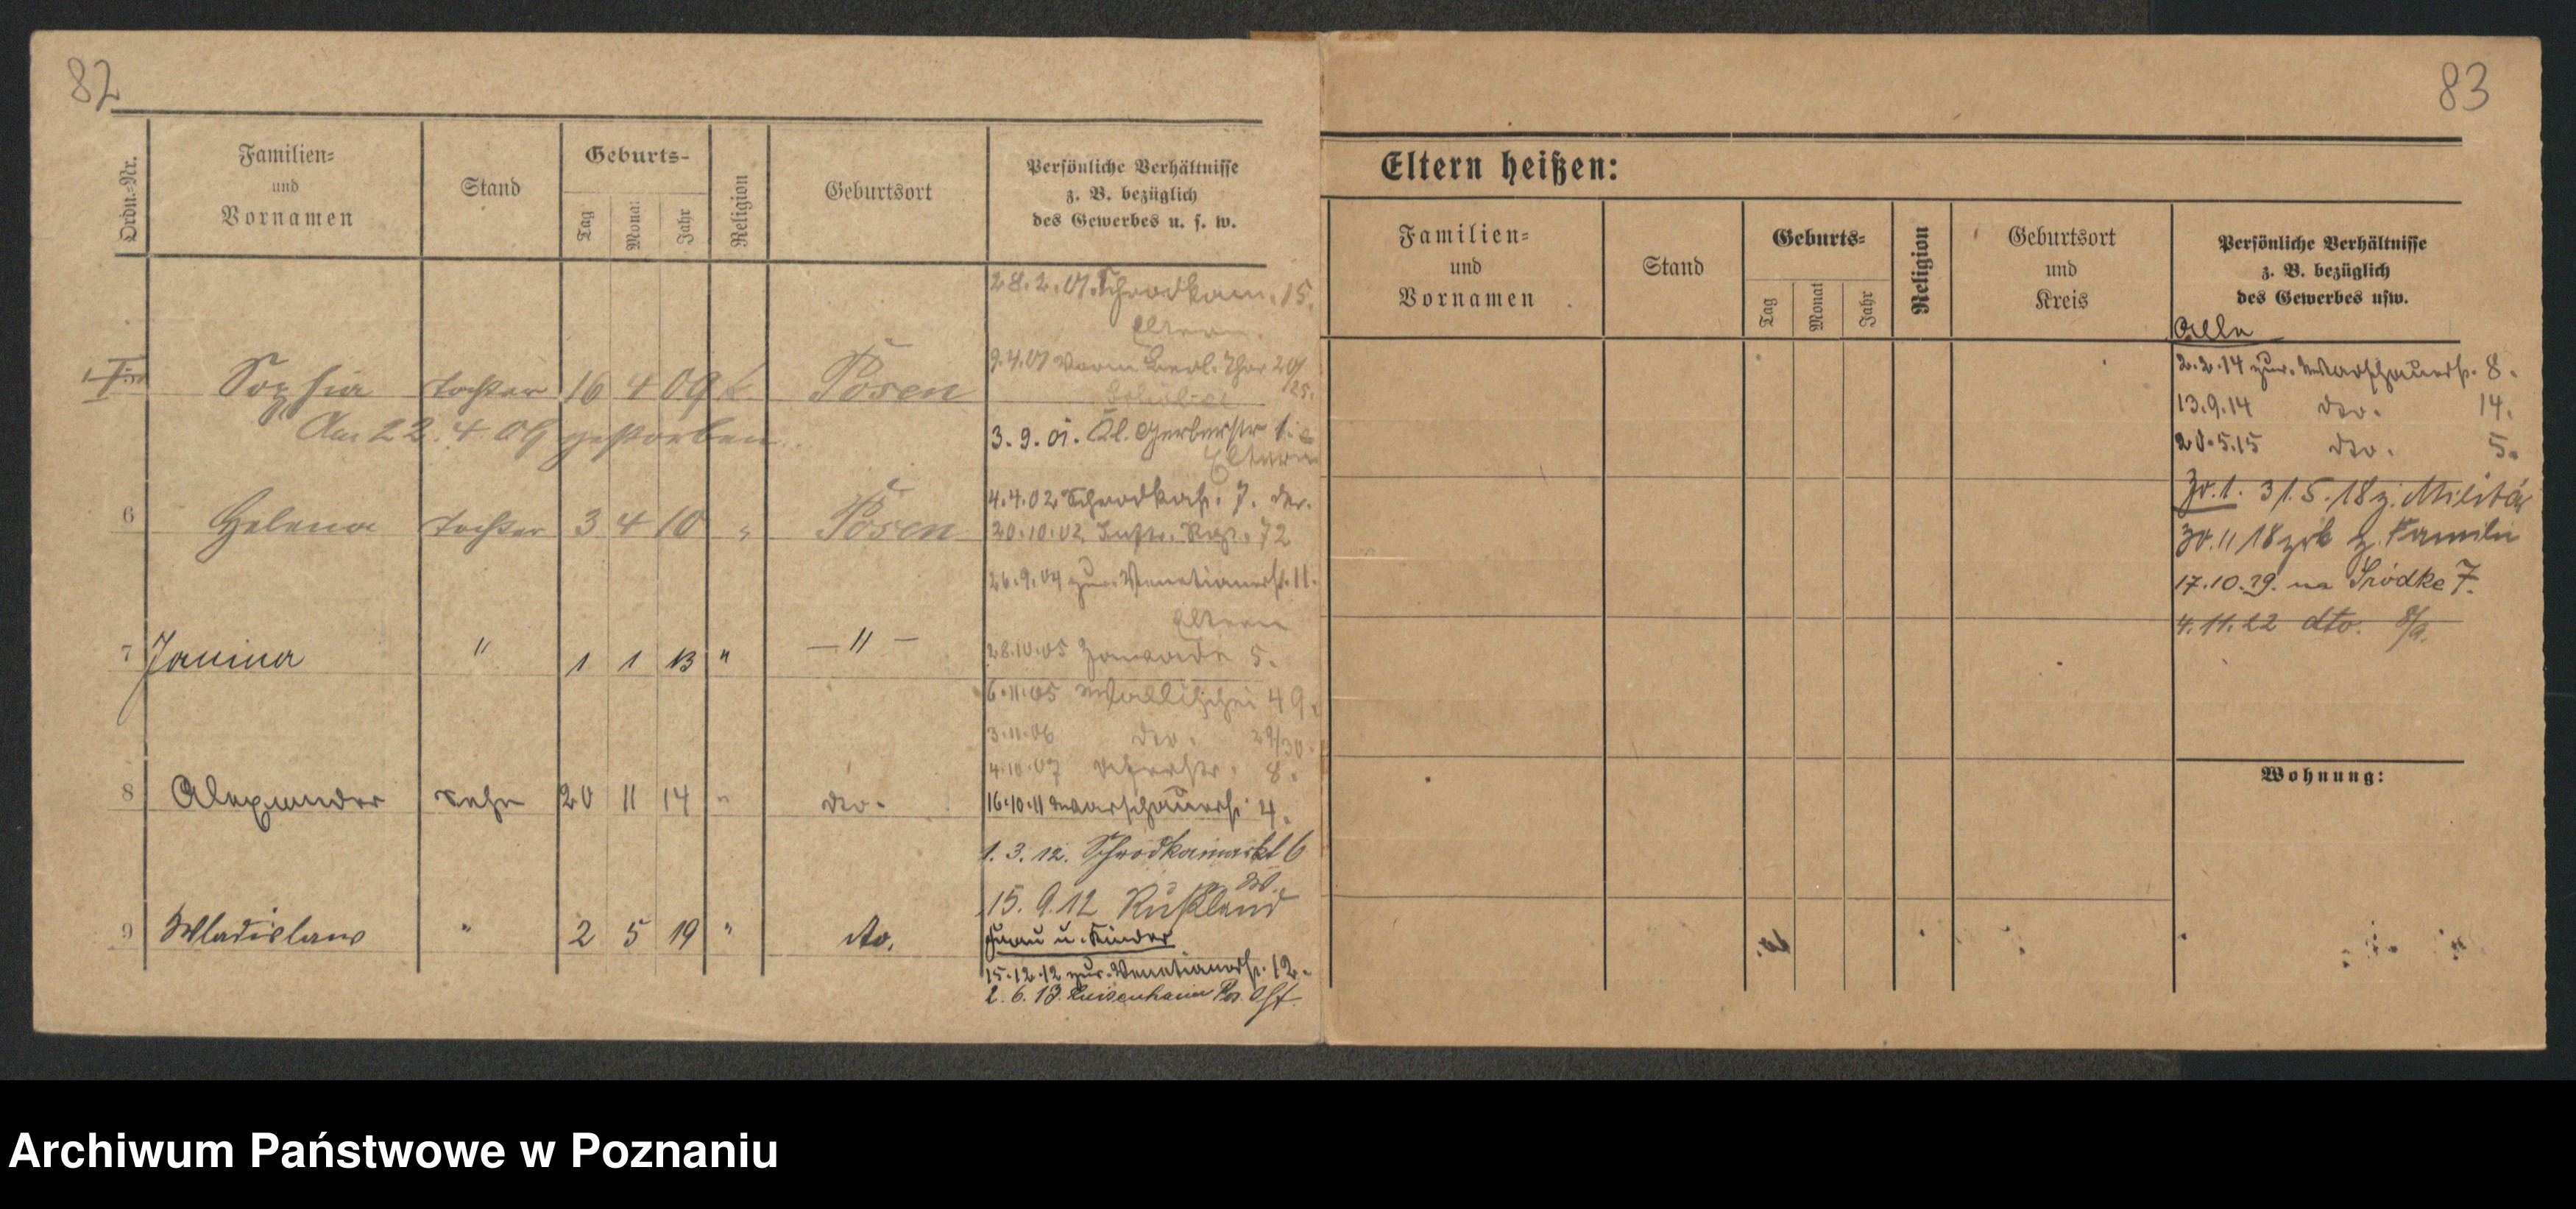 82
Ordn.-Nr.
Familien-
und
Vornamen
Stand
Geburts-
Tag
Monat
Jahr
Religion
Geburtsort
Persönliche Verhältnisse
z. B. bezüglich
des Gewerbes u. s. w.
28.2.01. Schrodkam. 15.
Eltern.
9.4.01 Vorm Berl. Thor
Sophia Tochter 16 4 09 k. Posen
Am 22. 4. 09 gestorben
3.9.01. Kl. Gerberstr 1.
Eltern
4.4.02 Schrodkastr. 7.
6 Helena Tochter 3 4 10 " Posen
20.10.02 Inftr. Rgt. 72
26.9.04 zur. Venetianerstr. 11.
Eltern
28.10.05 Zawade 5.
7 Janina " 1 1 13 " — " —
6.11.05 Wallischei 49.
3.11.06 dto. 29/30.
4.10.07 8.
8 Alexander Sohn 20 11 14 " dto.
16.10.11 Warschauerstr. 4.
1. 3. 12. Schrodkamarkt 6
15. 9. 12 Rußland
9 Wladislaus " 2 5 19 " dto.
Frau u. Kinder
15.12.12 zur. Venetianerstr. 12.
2. 6. 13. Luisenhain Pos. Ost.
83
Eltern heißen:
Familien-
und
Vornamen
Stand
Geburts-
Tag
Monat
Jahr
Religion
Geburtsort
und
Kreis
Persönliche Verhältnisse
z. B. bezüglich
des Gewerbes usw.
Alle
2.2.14 zur. Warschauerstr. 8.
13.9.14 dto. 14.
20.5.15 dto. 5.
Zo. 1. 31.5.18 z. Militär
30.11 18 zrk z. Familie
17.10.29. na Śródke 7.
4.11.22 dto. 8/9.
Wohnung:
Archiwum Państwowe w Poznaniu